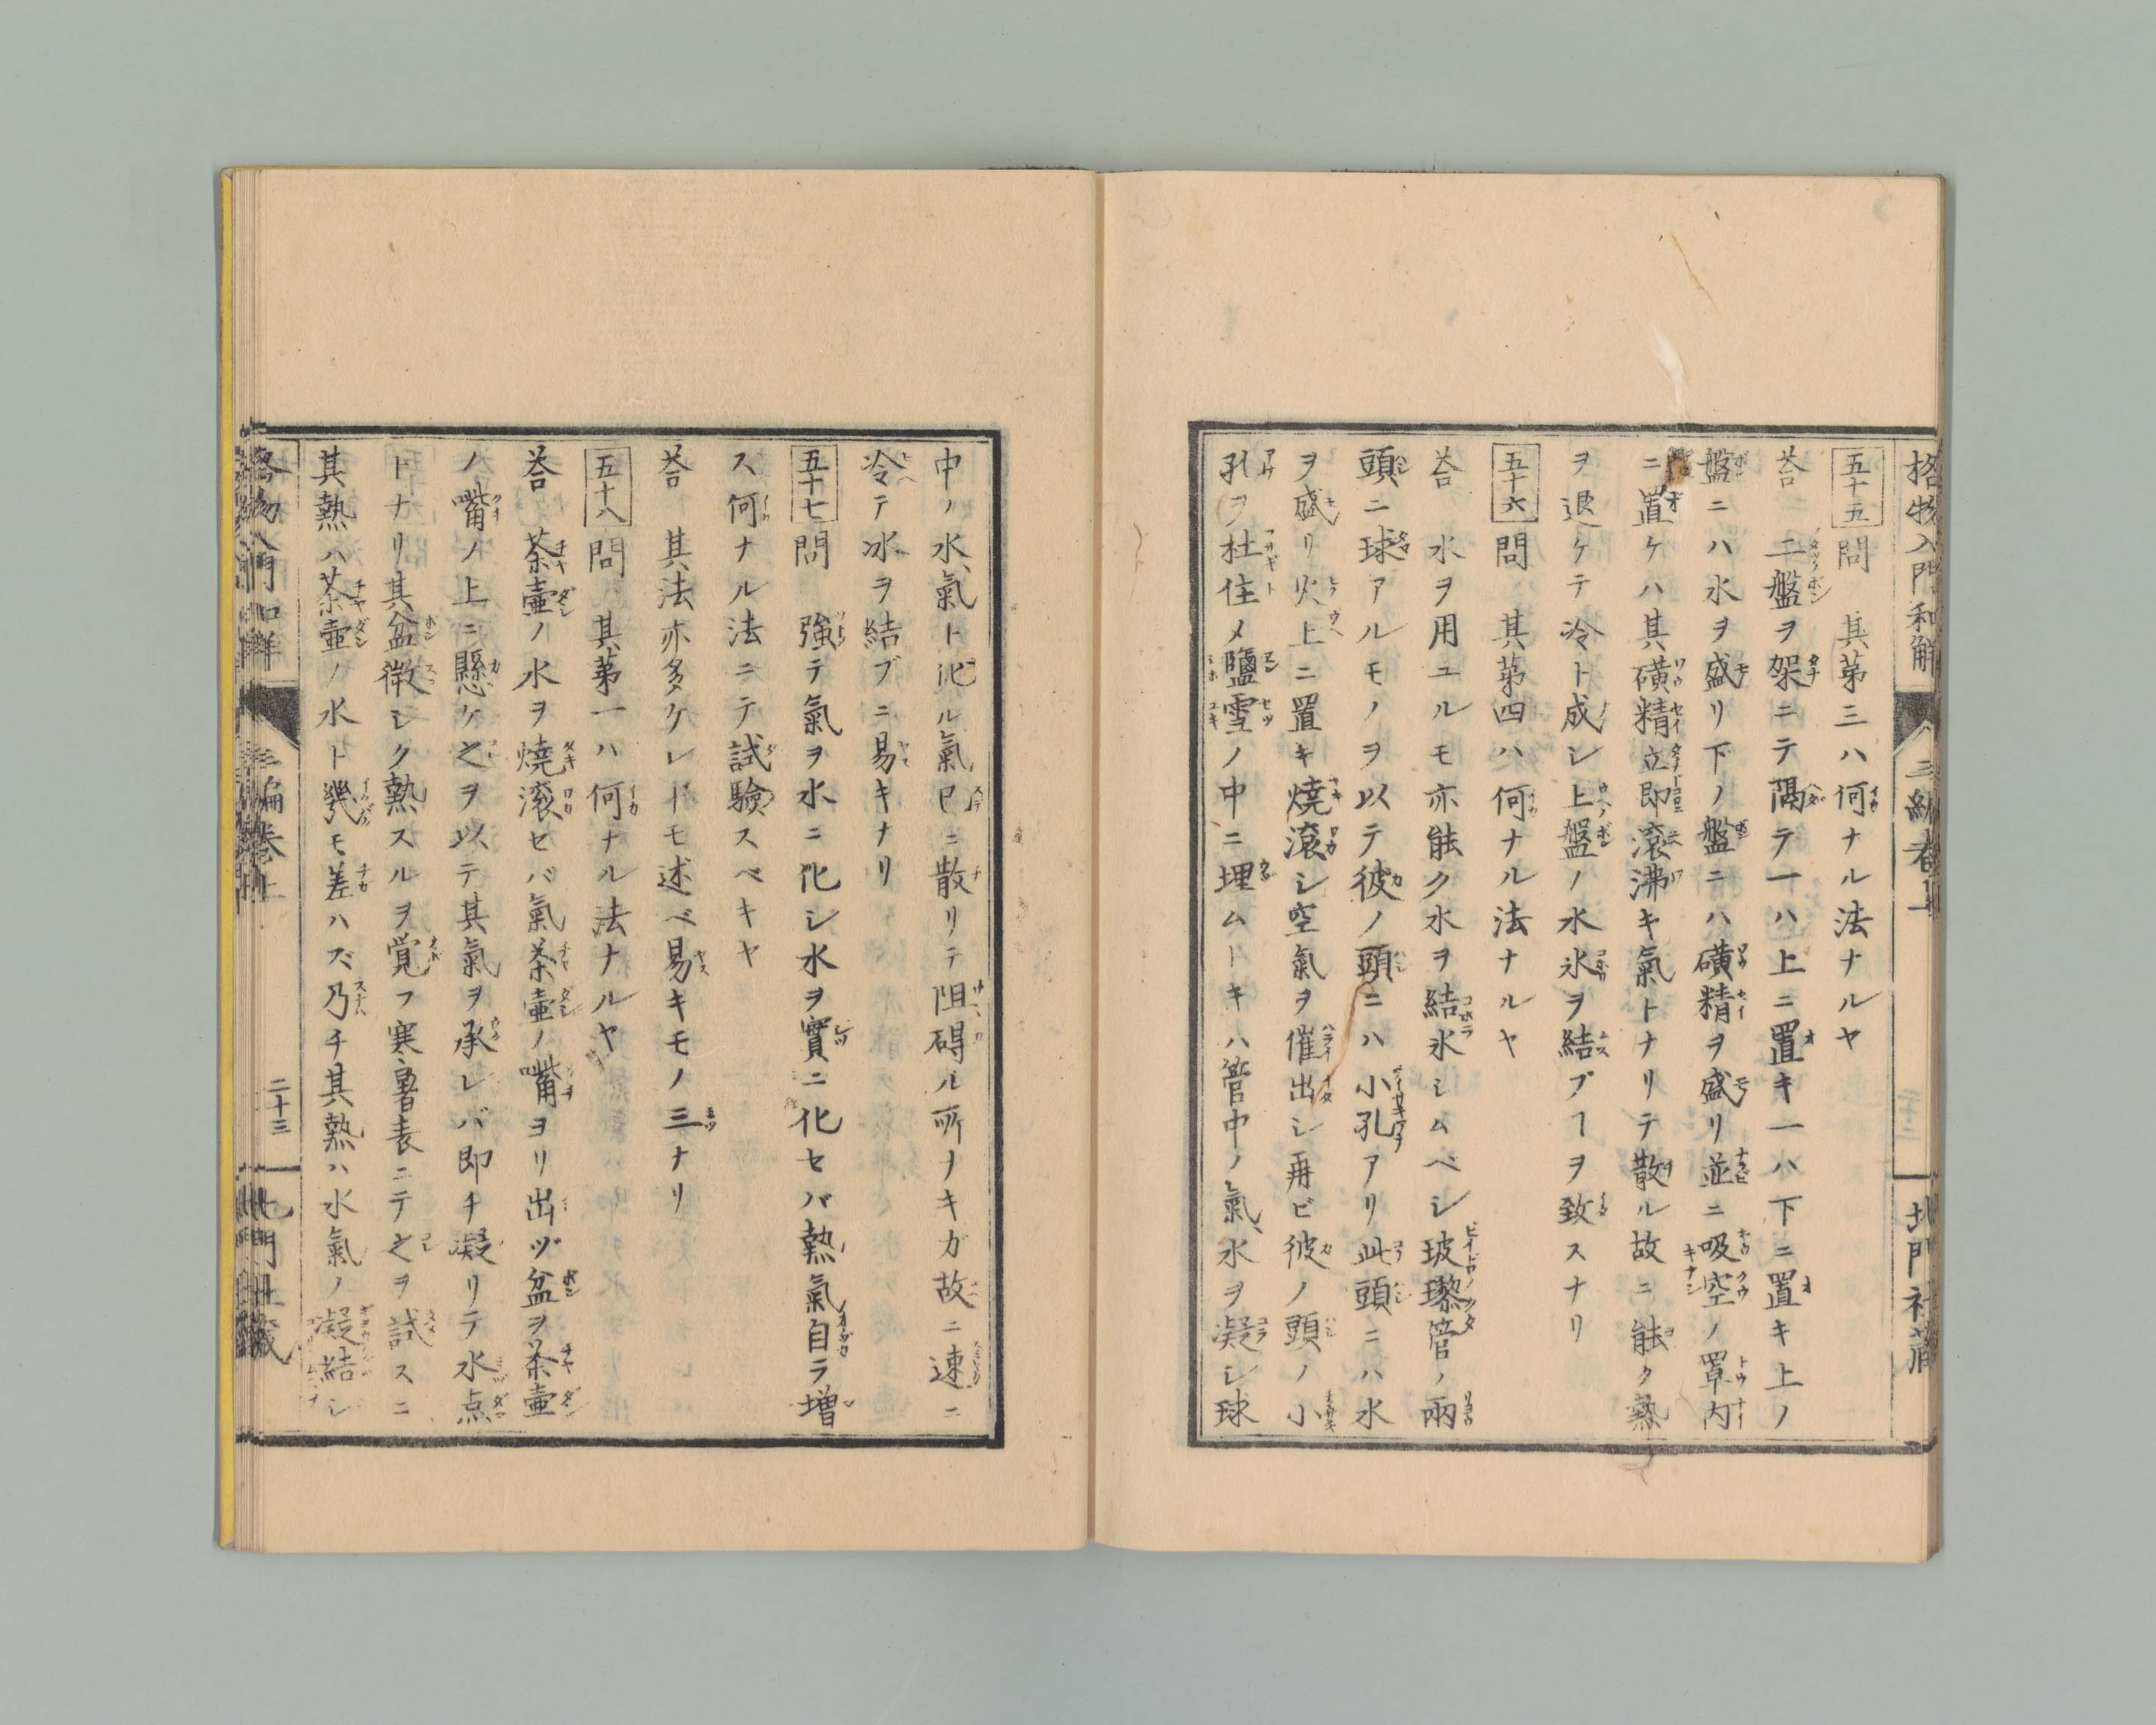 格物入門和解
三編巻上
北門社蔵
五十五 問 其第三ハ何ナル法ナルヤ
荅 二盤ヲ架ニテ隔ラ一ハ上ニ置キ一ハ下ニ置キ上ノ
盤ニハ水ヲ盛リ下ノ盤ニハ磺精ヲ盛リ並ニ吸空ノ罩内
ニ置ケハ其磺精立即滚沸キ氣トナリテ散ル故ニ能ク熱
ヲ退ケテ冷ト成シ上盤ノ水氷ヲ結ブヿヲ致スナリ
五十六 問 其第四ハ何ナル法ナルヤ
荅 水ヲ用ユルモ亦能ク水ヲ結氷シムベシ玻瓈管ノ兩
頭ニ球アルモノヲ以テ彼ノ頭ニハ小孔アリ此頭ニハ水
ヲ盛リ火上ニ置キ燒滚シ空氣ヲ催出シ再ビ彼ノ頭ノ小
孔ヲ杜住メ鹽雪ノ中ニ埋ムトキハ管中ノ氣水ヲ凝シ球
中ノ水氣ト化ル氣已ニ散リテ阻碍ル所ナキガ故ニ速ニ
冷テ冰ヲ結ブニ易キナリ
五十七 問 強テ氣ヲ水ニ化シ水ヲ實ニ化セバ熱氣自ラ増
ス何ナル法ニテ試驗スベキヤ
荅 其法亦多ケレドモ述ベ易キモノ三ナリ
五十八 問 其第一ハ何ナル法ナルヤ
荅 茶壷ノ水ヲ燒滚セバ氣茶壷ノ嘴ヨリ出ヅ盆ヲ茶壷
ノ嘴ノ上ニ懸ケ之ヲ以テ其氣ヲ承レバ即チ凝リテ水点
トナリ其盆微シク熱スルヲ覚フ寒暑表ニテ之ヲ試スニ
其熱ハ茶壷ノ水ト幾モ差ハズ乃チ其熱ハ水氣ノ凝結シ
格物入門和解
三編巻上
二十三
北門社蔵